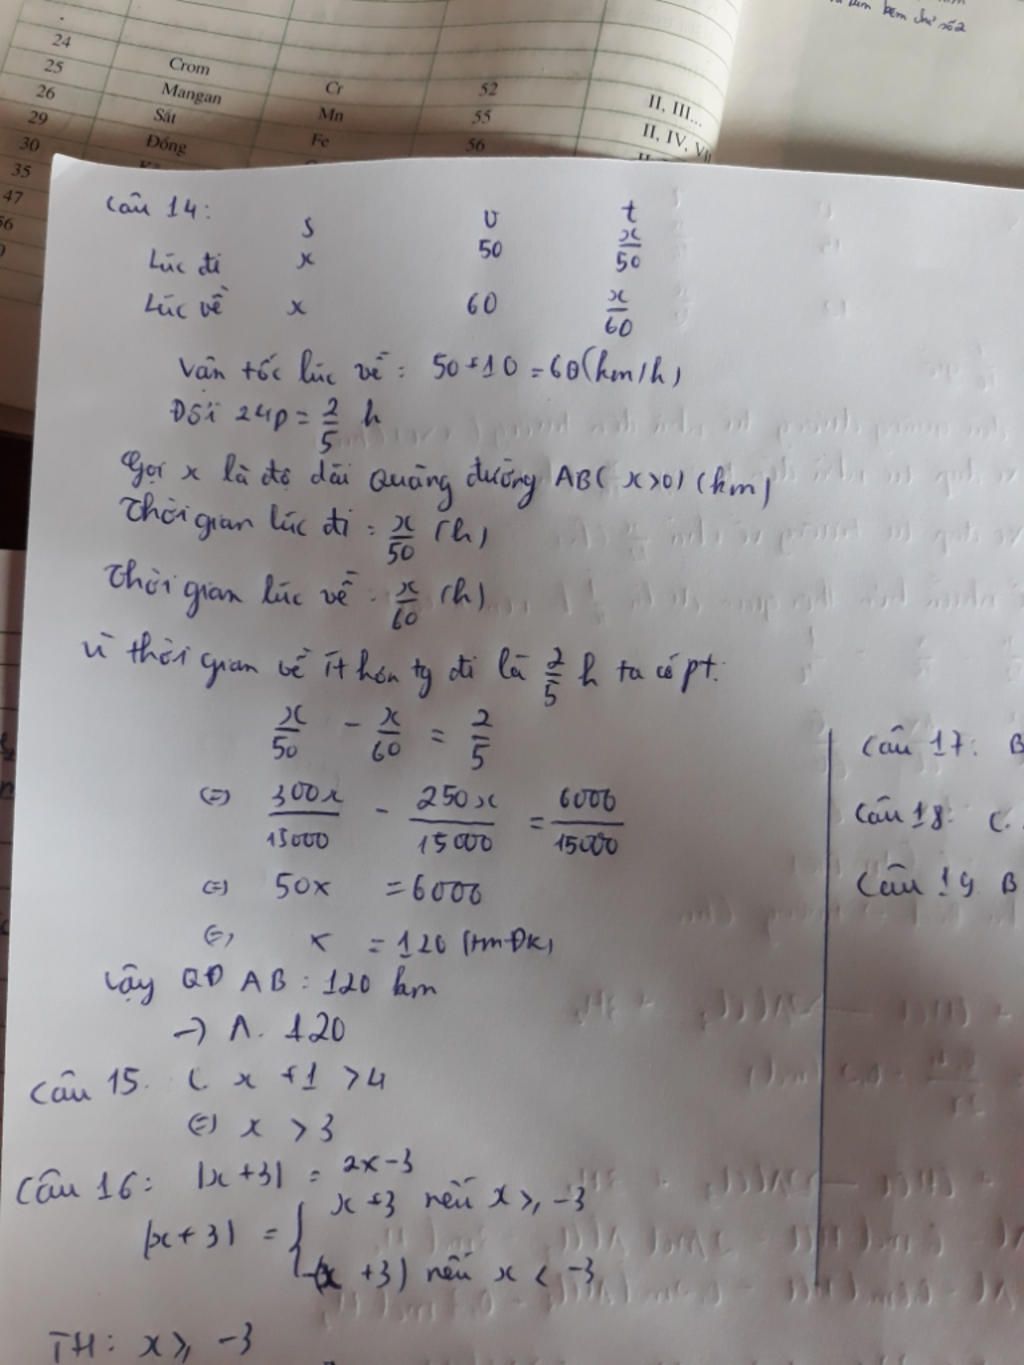 24
25 Crom Cr 52 II, III...
26 Mangan Mn 55 II, IV, VII
29 Sắt Fe 56
30 Đồng
35
47
Câu 14:
S v t
Lúc đi x 50 x/50
Lúc về x 60 x/60
Vận tốc lúc về: 50+10=60(km/h)
Đổi 24p = 2/5 h
Gọi x là độ dài quãng đường AB (x>0) (km)
Thời gian lúc đi: x/50 (h)
Thời gian lúc về: x/60 (h)
Vì thời gian về ít hơn tg đi là 2/5 h ta có pt:
x/50 - x/60 = 2/5
(=) 300x/15000 - 250x/15000 = 6000/15000
(=) 50x = 6000
(=) x = 120 (tmĐK)
Vậy QĐ AB: 120 km
→ A. 120
Câu 15. C x+1 >4
(=) x > 3
Câu 16: |x+3| = 2x-3
|x+3| = { x+3 nếu x ≥ -3
-(x+3) nếu x < -3
TH: x ≥ -3
Câu 17: B
Câu 18: C.
Câu 19. B